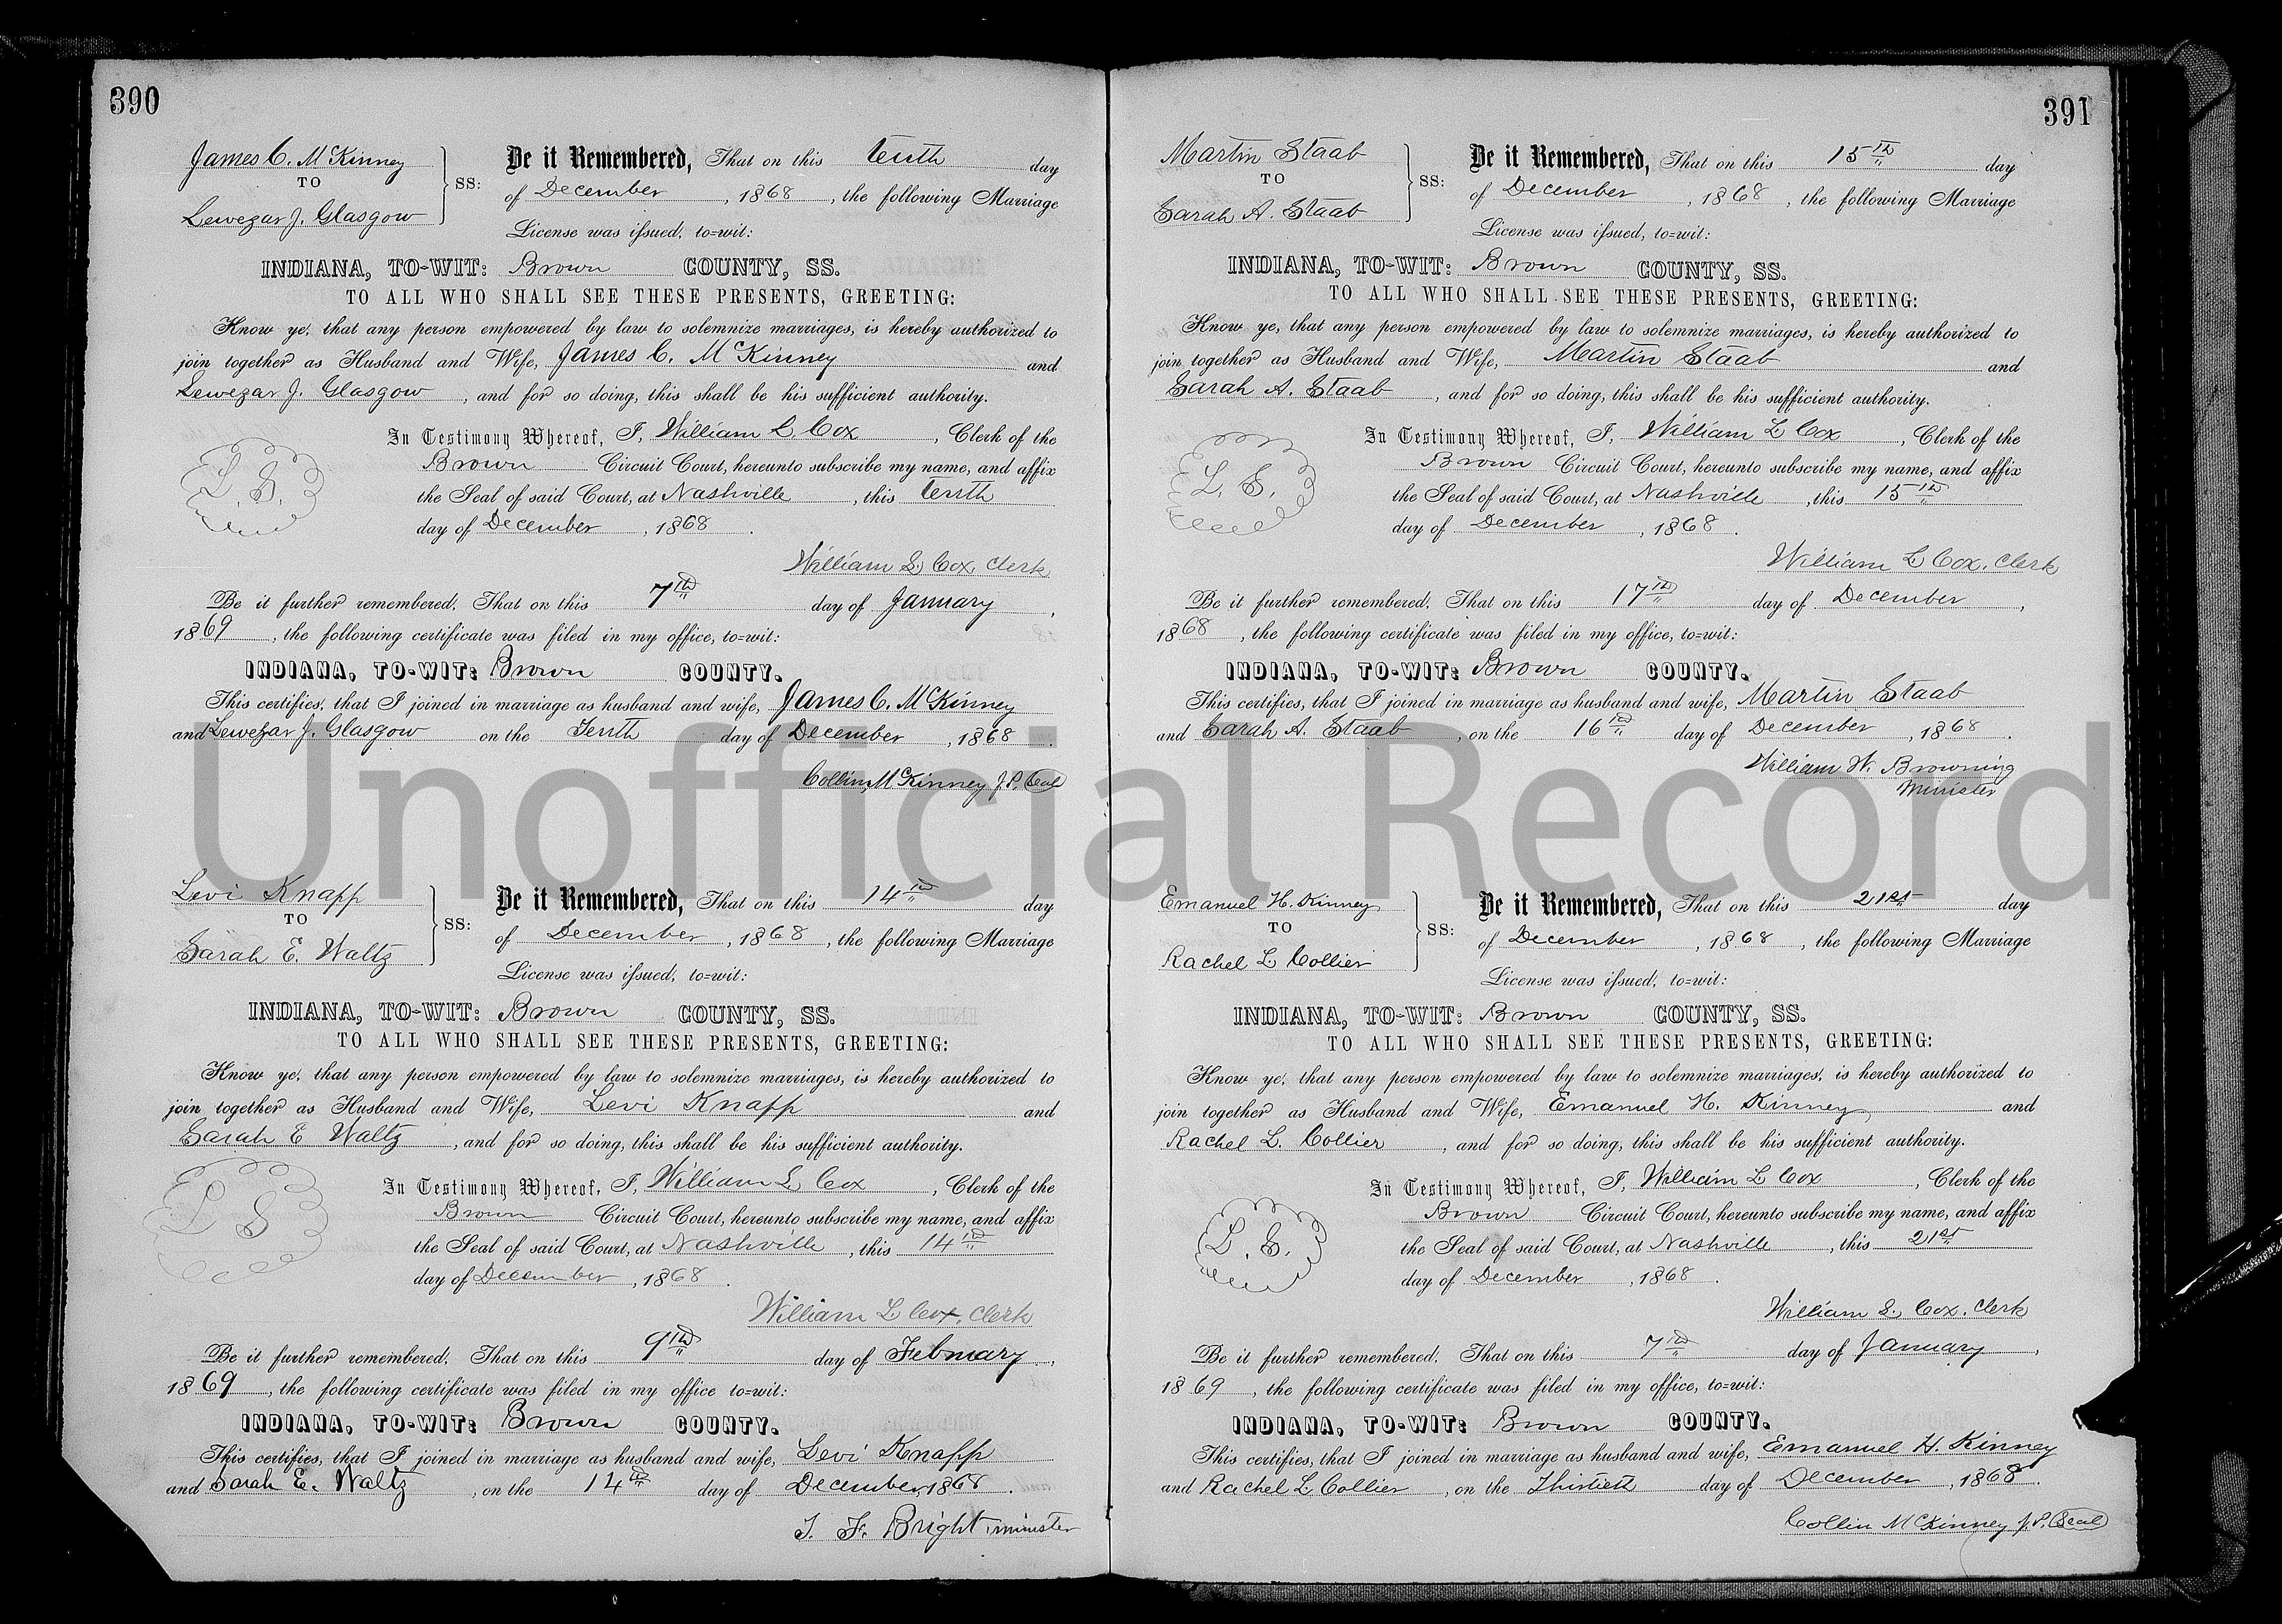 390
James C. McKinney
TO
Lewezar J. Glasgow
SS:
Be it Remembered, That on this tenth day
of December, 1868, the following Marriage
License was issued, to=wit:
INDIANA, TO-WIT: Brown COUNTY, SS.
TO ALL WHO SHALL SEE THESE PRESENTS, GREETING:
Know ye, that any person empowered by law to solemnize marriages, is hereby authorized to
join together as Husband and Wife, James C. McKinney and
Lewezar J. Glasgow, and for so doing, this shall be his sufficient authority.
L. S.
In Testimony Whereof, I, William L Cox, Clerk of the
Brown Circuit Court, hereunto subscribe my name, and affix
the Seal of said Court, at Nashville, this tenth
day of December, 1868.
William L. Cox, Clerk
Be it further remembered, That on this 7th day of January,
1869, the following certificate was filed in my office, to=wit:
INDIANA, TO-WIT: Brown COUNTY.
This certifies, that I joined in marriage as husband and wife, James C. McKinney
and Lewezar J. Glasgow on the Tenth day of December, 1868.
Collin McKinney J.P. Seal
Levi Knapp
TO
Sarah E. Waltz
SS:
Be it Remembered, That on this 14th day
of December, 1868, the following Marriage
License was issued, to=wit:
INDIANA, TO-WIT: Brown COUNTY, SS.
TO ALL WHO SHALL SEE THESE PRESENTS, GREETING:
Know ye, that any person empowered by law to solemnize marriages, is hereby authorized to
join together as Husband and Wife, Levi Knapp and
Sarah E Waltz, and for so doing, this shall be his sufficient authority.
L S
In Testimony Whereof, I, William L Cox, Clerk of the
Brown Circuit Court, hereunto subscribe my name, and affix
the Seal of said Court, at Nashville, this 14th
day of December, 1868.
William L Cox, Clerk
Be it further remembered, That on this 9th day of February,
1869, the following certificate was filed in my office to=wit:
INDIANA, TO-WIT: Brown COUNTY.
This certifies, that I joined in marriage as husband and wife, Levi Knapp
and Sarah E. Waltz, on the 14th day of December, 1868.
T. F. Bright, minister
391
Martin Staab
TO
Sarah A. Staab
SS:
Be it Remembered, That on this 15th day
of December, 1868, the following Marriage
License was issued, to=wit:
INDIANA, TO-WIT: Brown COUNTY, SS.
TO ALL WHO SHALL SEE THESE PRESENTS, GREETING:
Know ye, that any person empowered by law to solemnize marriages, is hereby authorized to
join together as Husband and Wife, Martin Staab and
Sarah A. Staab, and for so doing, this shall be his sufficient authority.
L. S.
In Testimony Whereof, I, William L Cox, Clerk of the
Brown Circuit Court, hereunto subscribe my name, and affix
the Seal of said Court, at Nashville, this 15th
day of December, 1868.
William L Cox, Clerk
Be it further remembered, That on this 17th day of December,
1868, the following certificate was filed in my office, to=wit:
INDIANA, TO-WIT: Brown COUNTY.
This certifies, that I joined in marriage as husband and wife, Martin Staab
and Sarah A. Staab, on the 16th day of December, 1868.
William W. Browning
Minister
Emanuel H. Kinney
TO
Rachel L Collier
SS:
Be it Remembered, That on this 21st day
of December, 1868, the following Marriage
License was issued, to=wit:
INDIANA, TO-WIT: Brown COUNTY, SS.
TO ALL WHO SHALL SEE THESE PRESENTS, GREETING:
Know ye, that any person empowered by law to solemnize marriages, is hereby authorized to
join together as Husband and Wife, Emanuel H. Kinney and
Rachel L. Collier, and for so doing, this shall be his sufficient authority.
L. S.
In Testimony Whereof, I, William L Cox, Clerk of the
Brown Circuit Court, hereunto subscribe my name, and affix
the Seal of said Court, at Nashville, this 21st
day of December, 1868.
William L. Cox, Clerk
Be it further remembered, That on this 7th day of January,
1869, the following certificate was filed in my office, to=wit:
INDIANA, TO-WIT: Brown COUNTY.
This certifies, that I joined in marriage as husband and wife, Emanuel H. Kinney
and Rachel L Collier, on the Thirtieth day of December, 1868.
Collin McKinney J.P. Seal
Unofficial Record